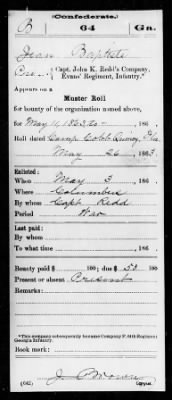 (Confederate.)
B 64 Ga.
Jean Baptiste
Capt. John K. Redd's Company,
Evans' Regiment, Infantry.*
Appears on a
Muster Roll
for bounty of the organization named above,
for May 11, 186
Roll dated Camp Cobb Quincy, Fla.
May 26 1863.
Enlisted:
When May 3, 186
Where Columbus
By whom Capt Redd
Period War
Last paid:
By whom
To what time 186
Bounty paid $ 100; due $ 50 100
Present or absent Present
Remarks:
*This company subsequently became Company F, 64th Regiment Georgia Infantry.
Book mark:
(642) J. Brown
Copyist.